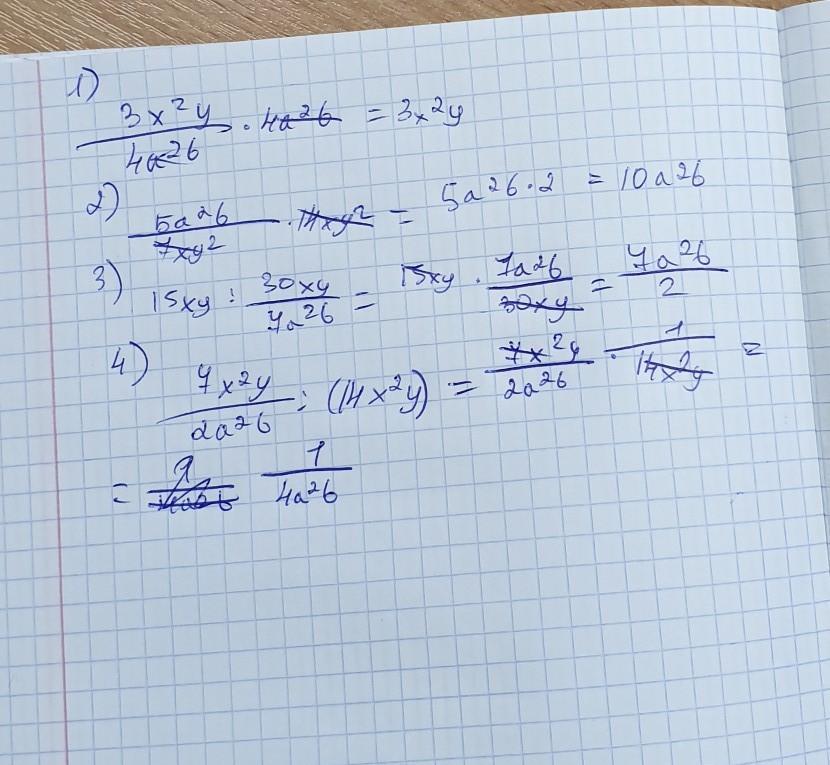 1)
3x²y / 4a²b · 4a²b = 3x²y
2)
5a²b / 7xy² · 14xy² = 5a²b · 2 = 10a²b
3)
15xy : 30xy / 7a²b = 15xy · 7a²b / 30xy = 7a²b / 2
4)
7x²y / 2a²b : (14x²y) = 7x²y / 2a²b · 1 / 14x²y =
= 1 / 4a²b